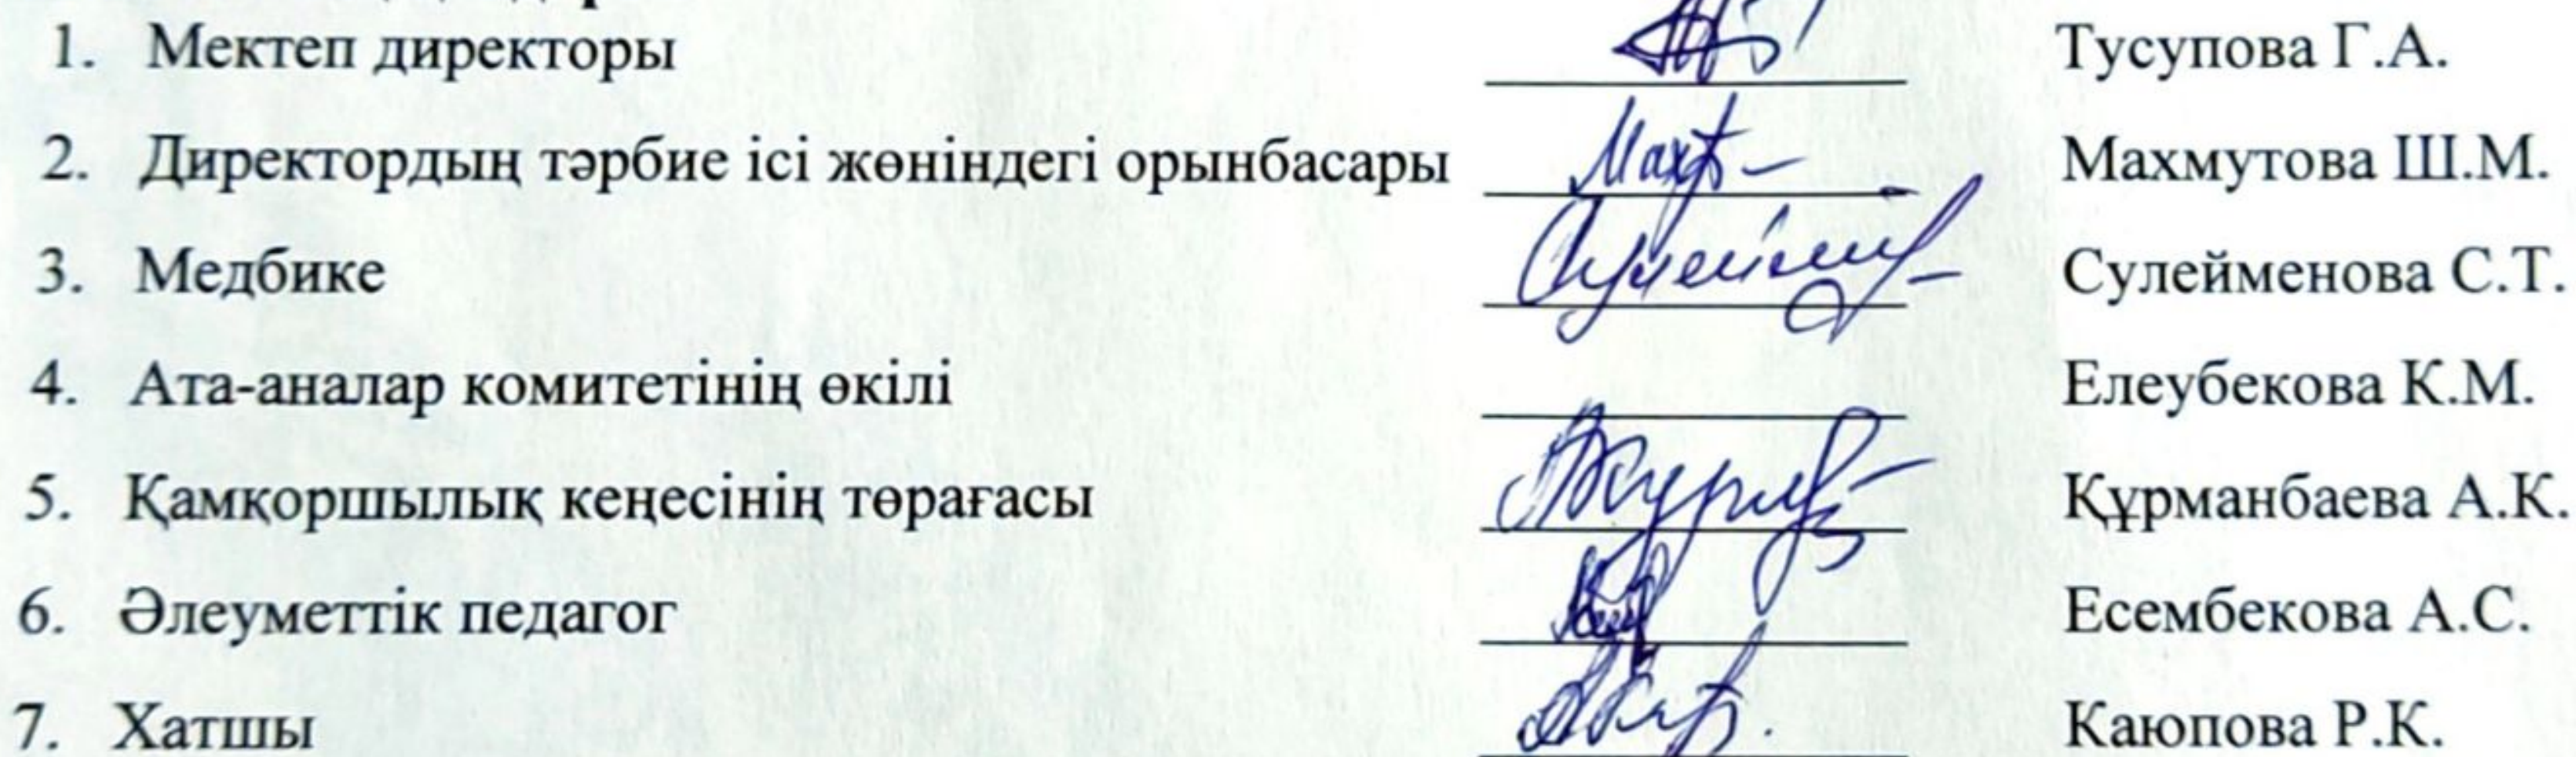 1. Мектеп директоры Тусупова Г.А.
2. Директордың тәрбие ісі жөніндегі орынбасары Махмутова Ш.М.
3. Медбике Сулейменова С.Т.
4. Ата-аналар комитетінің өкілі Елеубекова К.М.
5. Қамқоршылық кеңесінің төрағасы Құрманбаева А.К.
6. Әлеуметтік педагог Есембекова А.С.
7. Хатшы Каюпова Р.К.